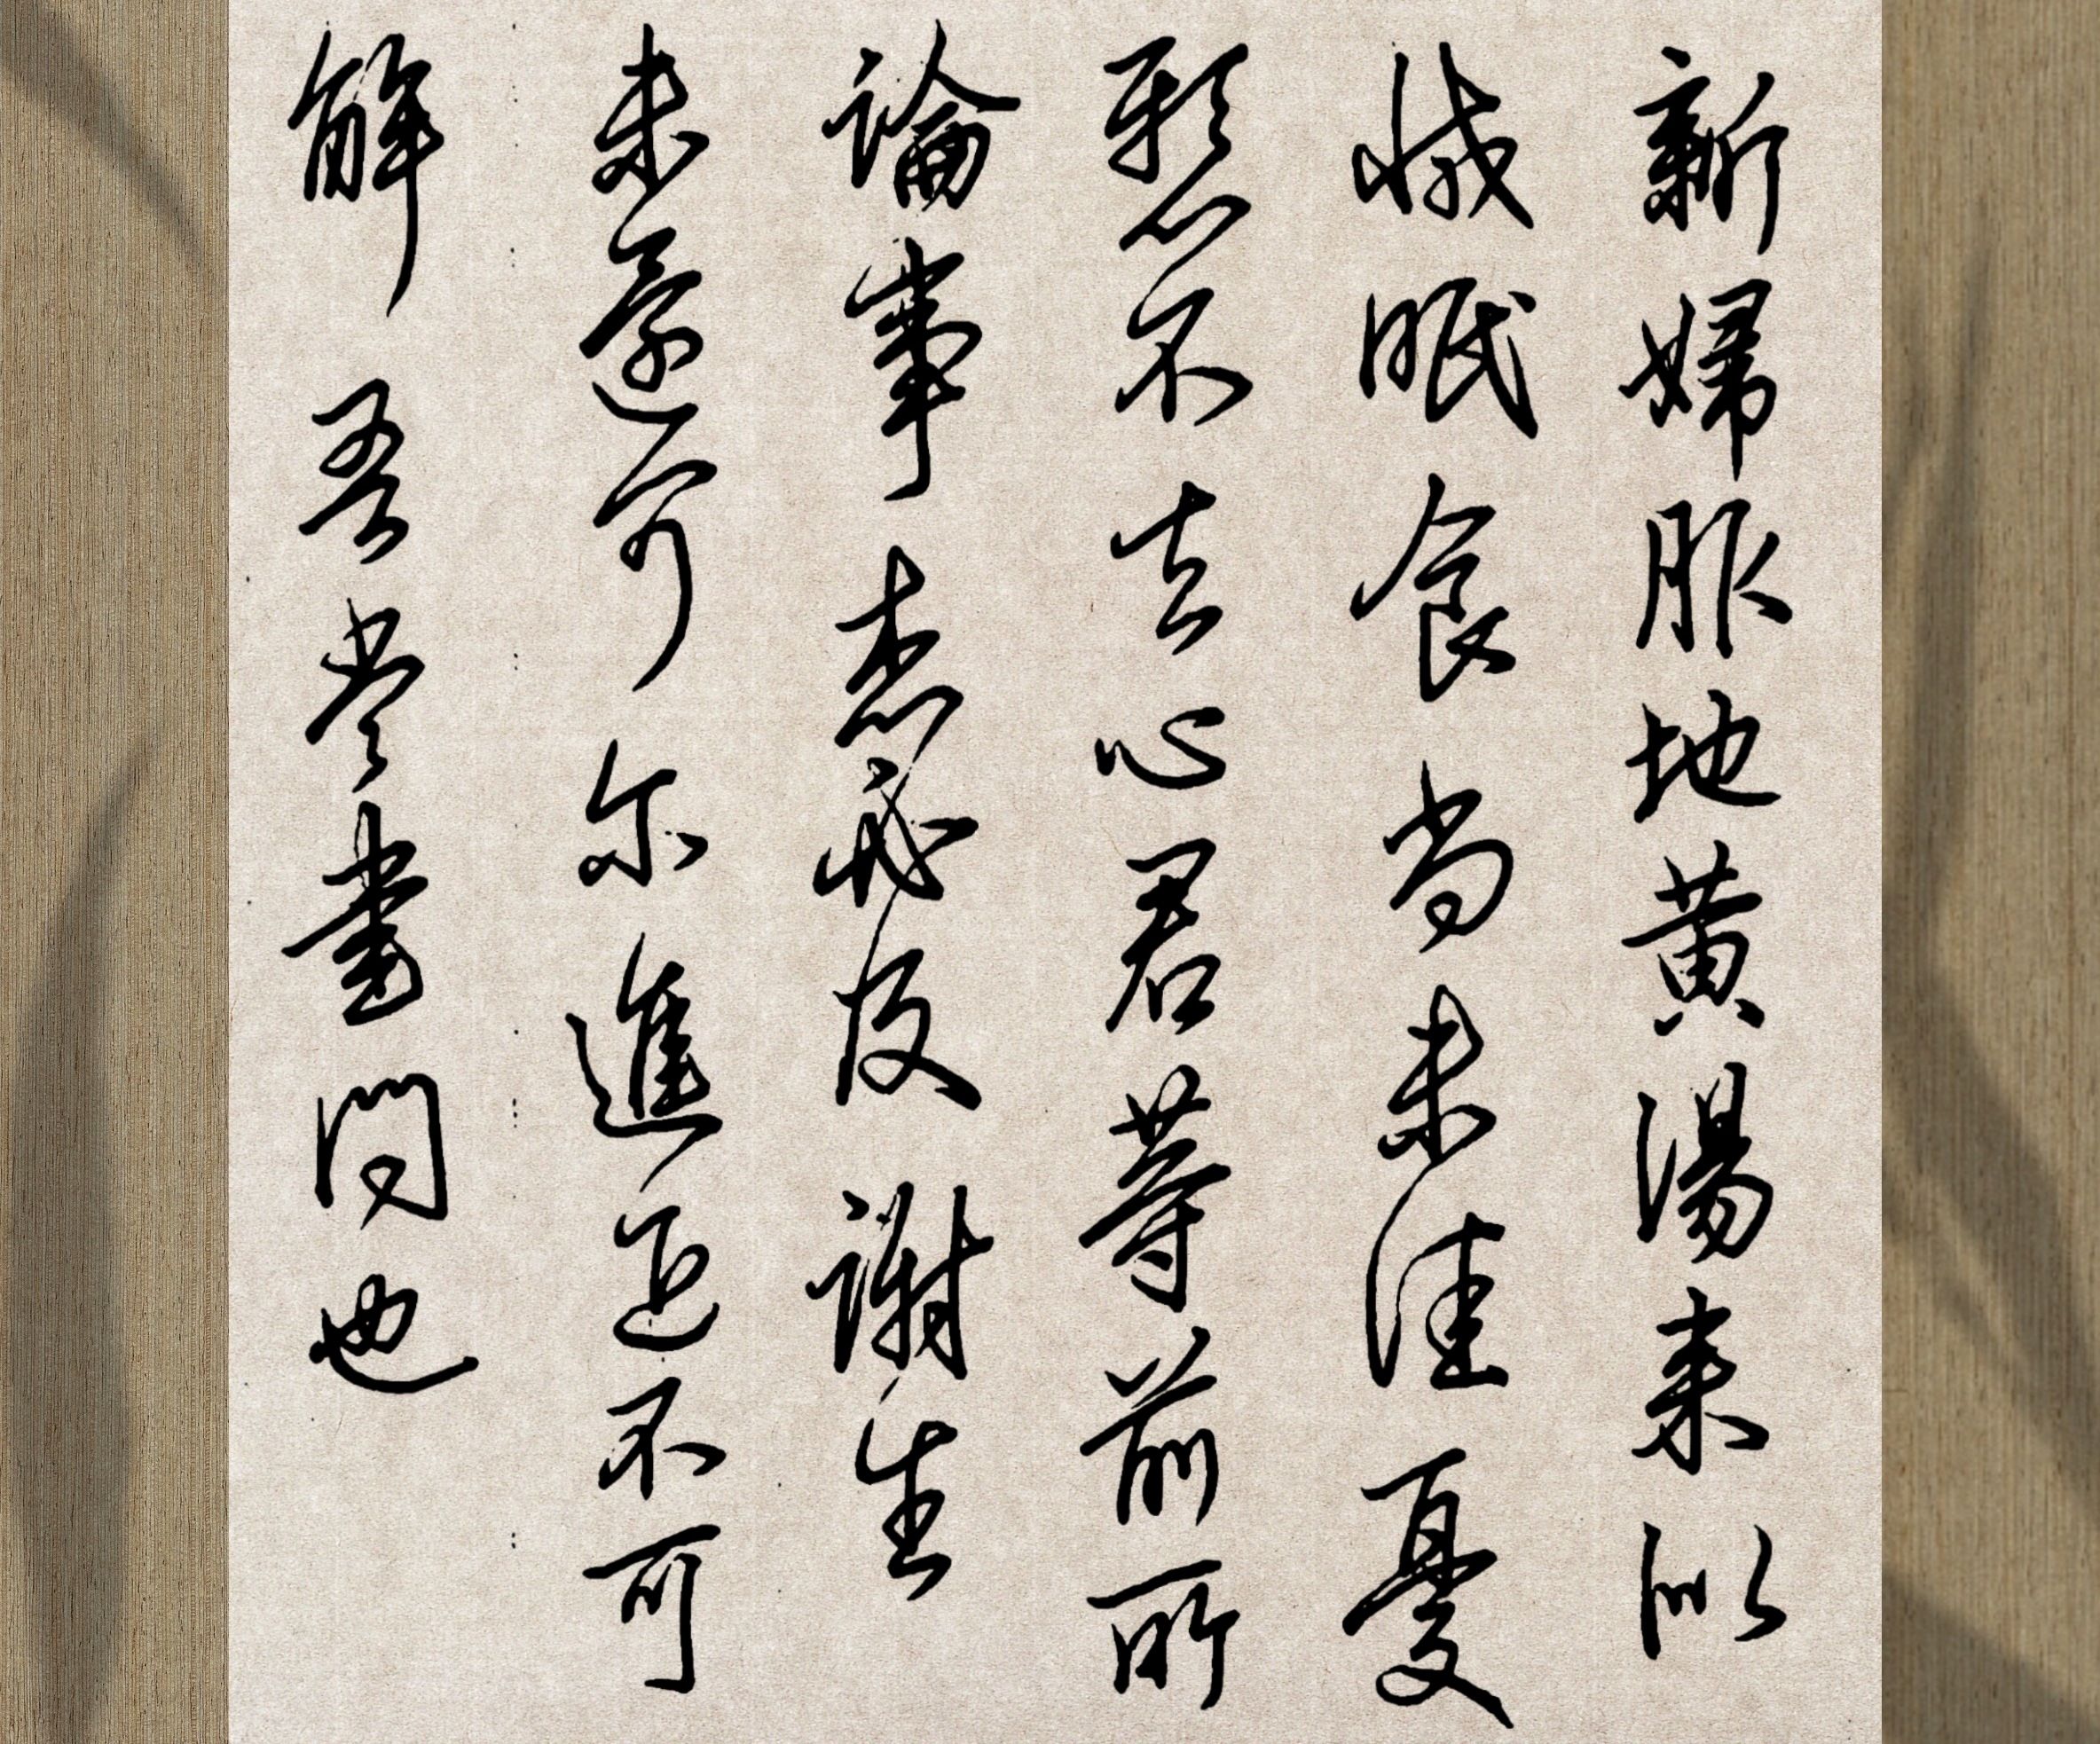 新婦服地黄湯来似
減眠食尚未佳憂
懸不去心君等前所
論事想必及謝生
未還可尔進退不可
解吾當書問也